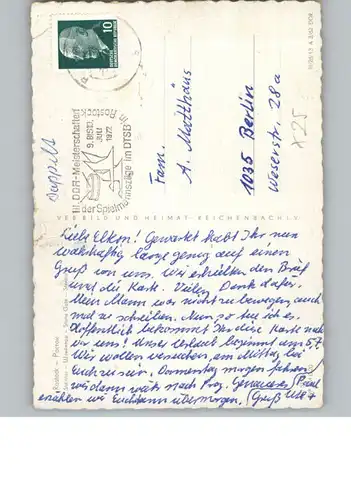 10
III. DDR-Meisterschaften
der Spielmannszüge im DTSB in Rostock
9. BIS 13.
JULI
1972
Doppelt
Fam.
A. Matthäus
1035 Berlin
Weserstr. 28a
x25
VEB BILD UND HEIMAT REICHENBACH I. V.
Liebe Eltern! Gewartet habt Ihr nun
wahrhaftig lange genug auf einen
Gruß von uns. Wir erhielten den Brief
und die Karte. Vielen Dank dafür.
Mein Mann war nicht zu bewegen, auch
mal zu schreiben. Nun so tue ich es.
Hoffentlich bekommt Ihr diese Karte noch
vor uns! Unser Urlaub beginnt am 5.7.
Wir wollen versuchen, am Mittag bei
Euch zu sein. Donnerstag morgen fahren
wir dann weiter nach Prag. Genaueres
erzählen wir Euch dann übermorgen. Gruß